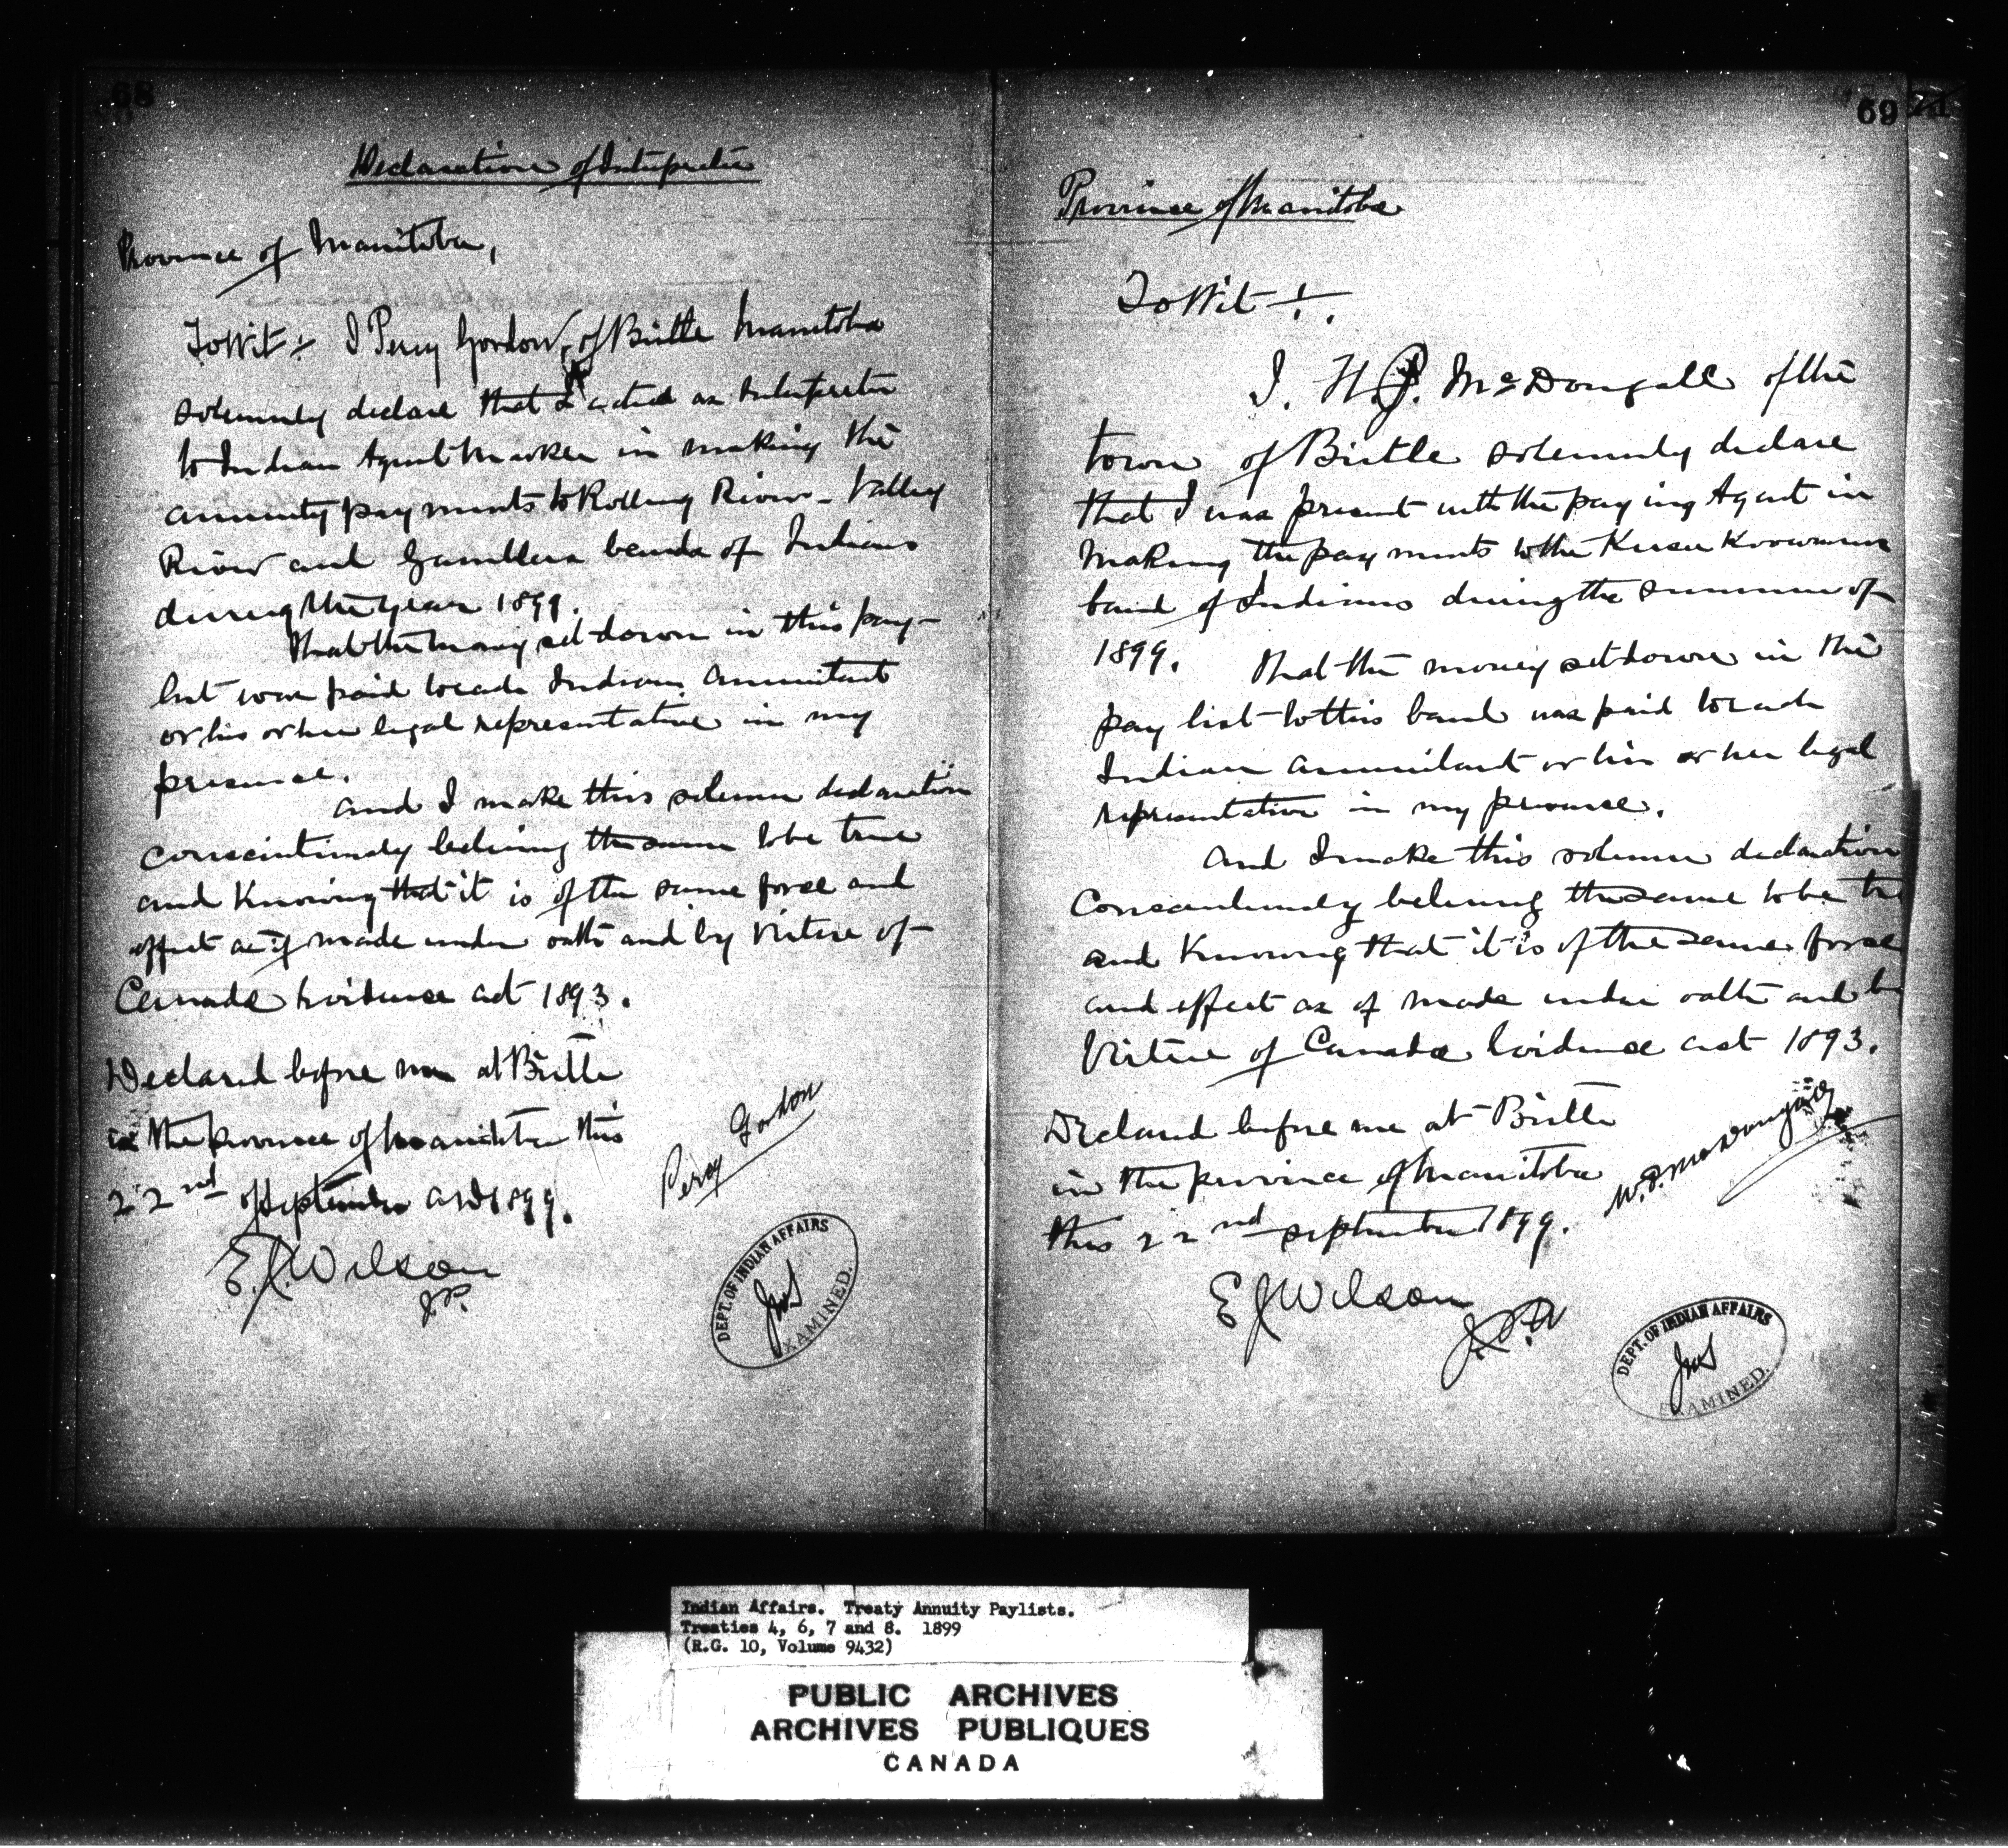 68
Declaration of Interpreter
Province of Manitoba,
To Wit :- I Percy Gordon, of Birtle Manitoba
solemnly declare that I acted as Interpreter
to Indian Agent Markle in making the
annuity payments to Rolling River - Valley
River and Gamblers bands of Indians
during the year 1899.
That the money set down in this pay-
list was paid to each Indian annuitant
or his or her legal representative in my
presence.
And I make this solemn declaration
conscientiously believing the same to be true
and Knowing that it is of the same force and
effect as if made under oath and by Virtue of
Canada Evidence act 1893.
Declared before me at Birtle
in the province of Manitoba this
22nd of September AD 1899.
Percy Gordon
E.J. Wilson
J.P.
DEPT. OF INDIAN AFFAIRS
EXAMINED.
69
Province of Manitoba
To Wit :-
I. McDougall of the
town of Birtle solemnly declare
that I was present with the paying Agent in
making the payments to the
band of Indians during the summer of
1899. That the money set down in the
pay list to this band was paid to each
Indian annuitant or his or her legal
representative in my presence.
And I make this solemn declaration
Conscientiously believing the same to be tr
and Knowing that it is of the same force
and effect as if made under oath and b
Virtue of Canada Evidence act 1893.
Declared before me at Birtle
in the province of Manitoba
this 22nd September 1899.
E J Wilson
DEPT. OF INDIAN AFFAIRS
EXAMINED.
Indian Affairs. Treaty Annuity Paylists.
Treaties 4, 6, 7 and 8. 1899
(R.G. 10, Volume 9432)
PUBLIC ARCHIVES
ARCHIVES PUBLIQUES
CANADA